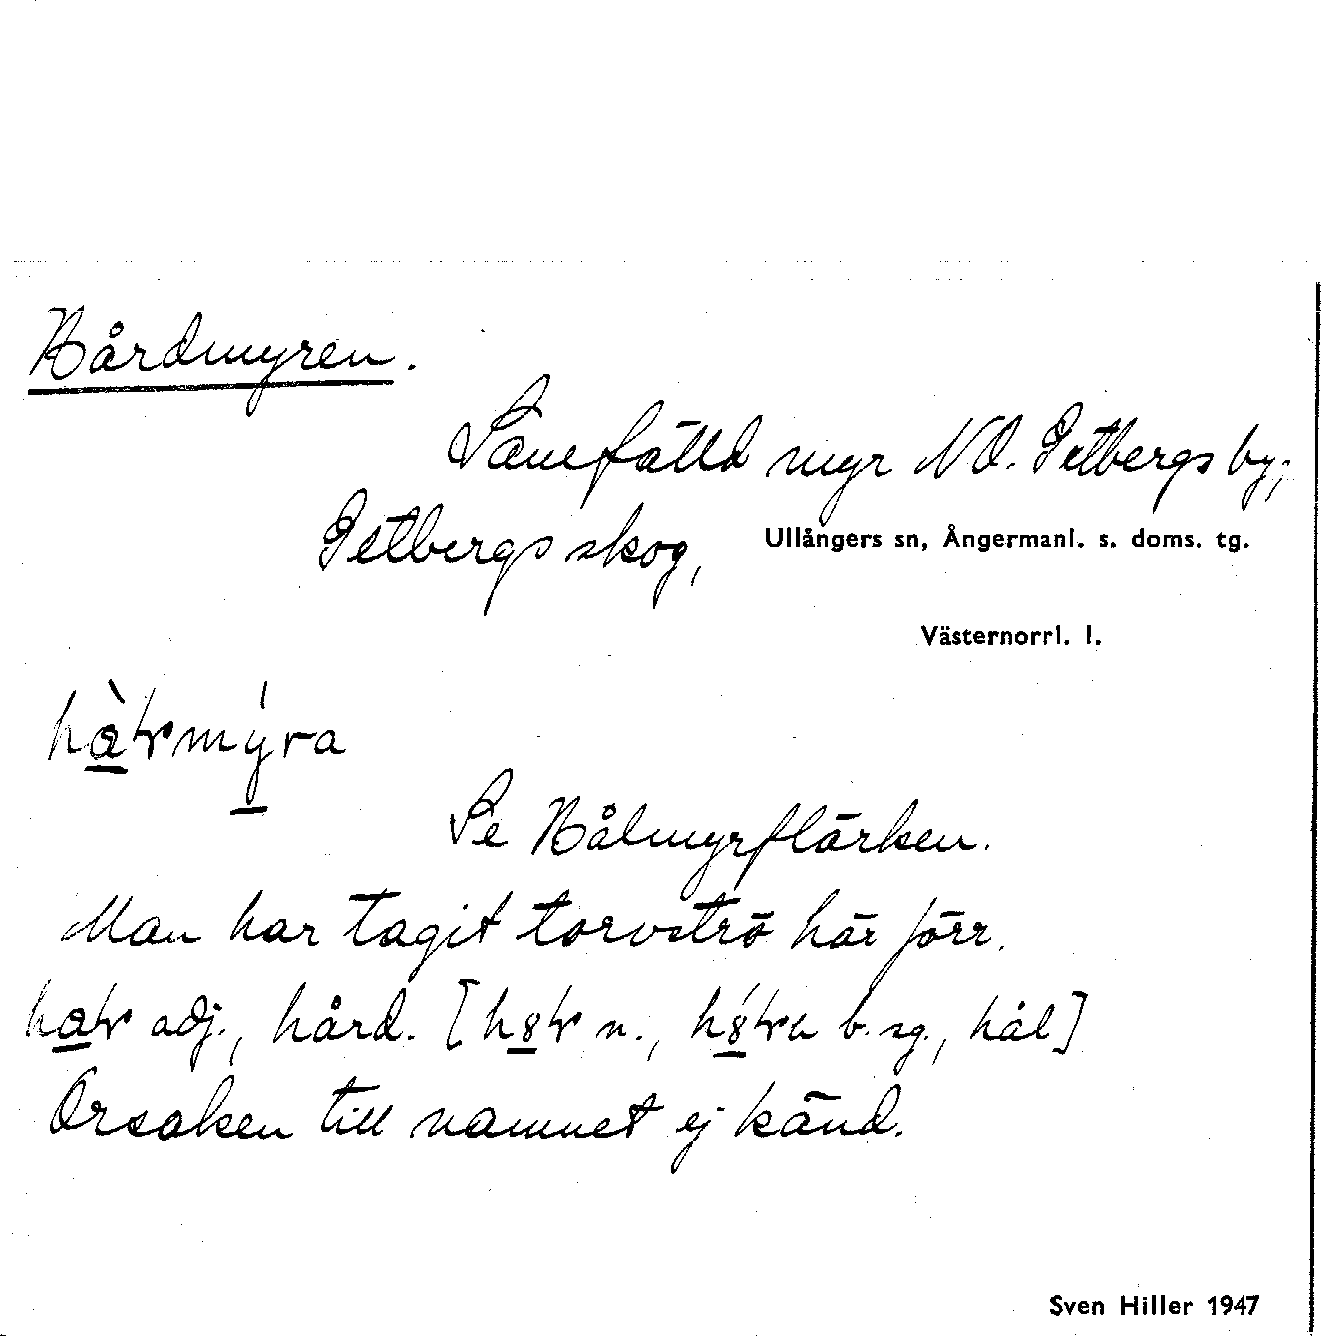 Hårdmyren.
Samfälld myr NO. Getbergs by;
Getbergs skog,
Ullångers sn, Ångermanl. s. doms. tg.
Västernorrl. l.
Se Hålmyrflärken.
Man har tagit torvströ här förr.
adj., hård. [ n., b. sg., hål]
Orsaken till namnet ej känd.
Sven Hiller 1947